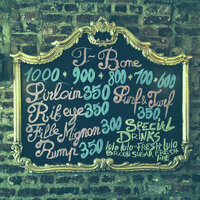 T-Bone
1000 • 900 • 800 • 700 • 600
Sirloin 350 Surf & Turf
Rib eye 350 350
Fille Mignon 300 SPECIAL
Rump 350 DRINKS
lulo lulo - FRESH lulo
BROWN SUGAR FRESH
LIME